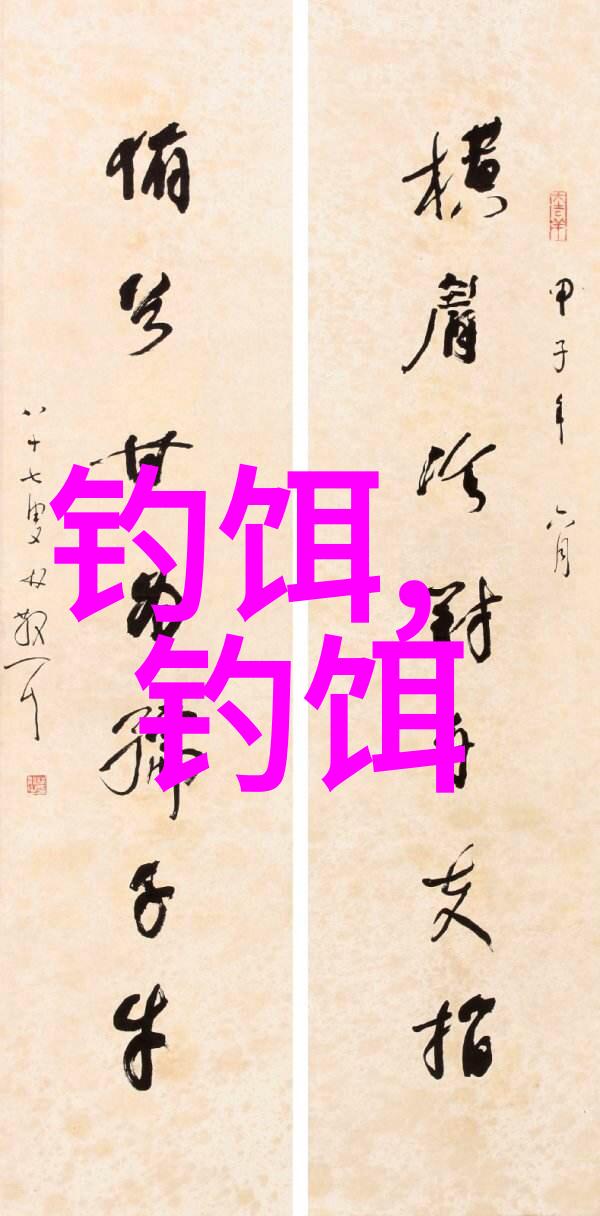 横眉冷對千夫指
俯首甘為孺子牛
甲子年六月
八十七叟林散之
钓饵,
钓饵